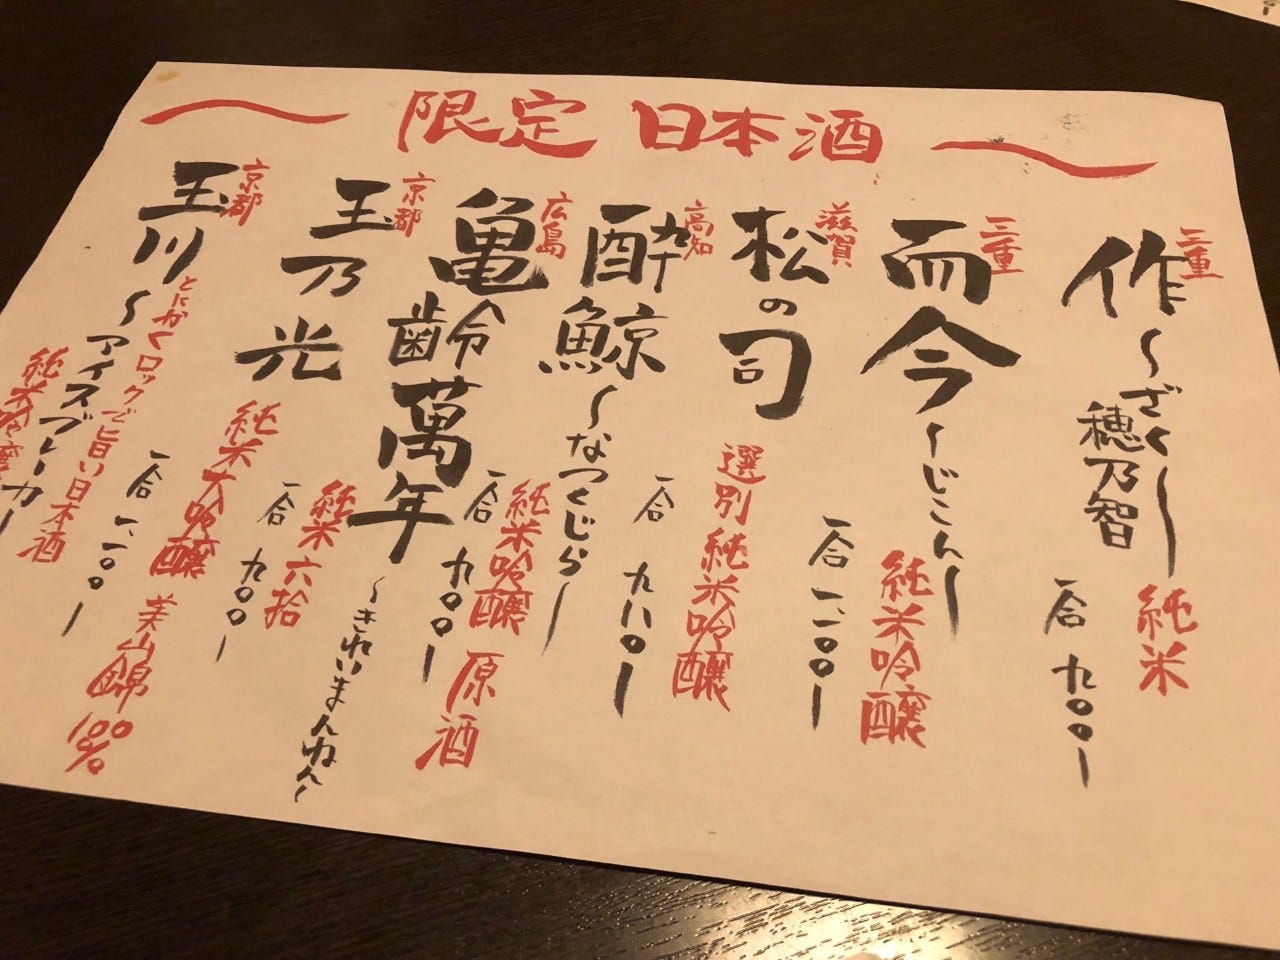 限定 日本酒
三重
作〜ざく〜
穂乃智
純米
一合 九〇〇ー
三重
而今〜じこん〜
純米吟醸
一合 一、二〇〇ー
滋賀
松の司
選別 純米吟醸
一合 九八〇ー
高知
酔鯨〜なつくじら〜
純米吟醸 原酒
一合 九〇〇ー
広島
亀齢萬年〜きれいまんねん〜
純米 六拾
一合 九〇〇ー
京都
玉乃光
純米大吟醸 美山錦100%
一合 一、二〇〇ー
京都
玉川〜アイスブレーカー
とにかくロックで旨い日本酒
純米吟醸